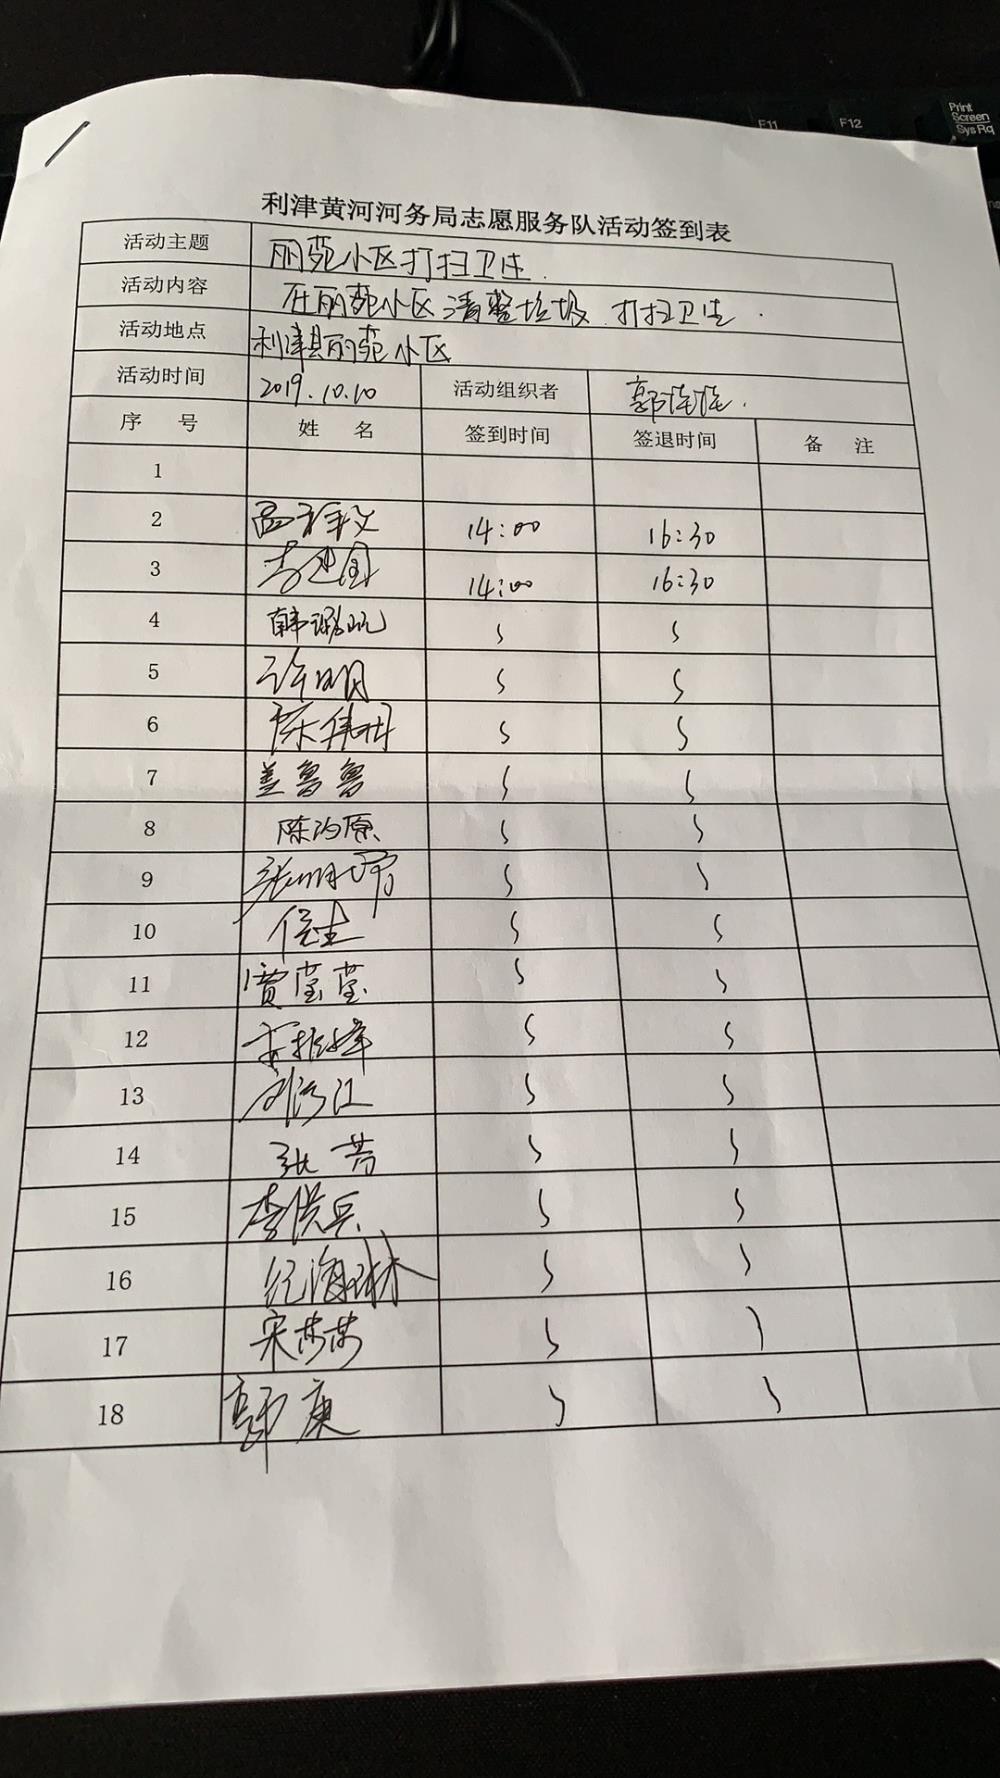 Print
Screen
SysRq
F11
F12
利津黄河河务局志愿服务队活动签到表
活动主题 丽苑小区打扫卫生.
活动内容 在丽苑小区清整垃圾.打扫卫生.
活动地点 利津县丽苑小区
活动时间 2019.10.10 活动组织者 郭
序 号 姓 名 签到时间 签退时间 备 注
1
2 14:00 16:30
3 李建国 14:00 16:30
4 韩
5 许明
6 陈伟
7 盖鲁鲁
8 陈
9 张明
10 侯
11 贾莹莹
12
13 刘江
14 张芳
15 李兵
16 纪海琳
17 宋莎莎
18 郭庚